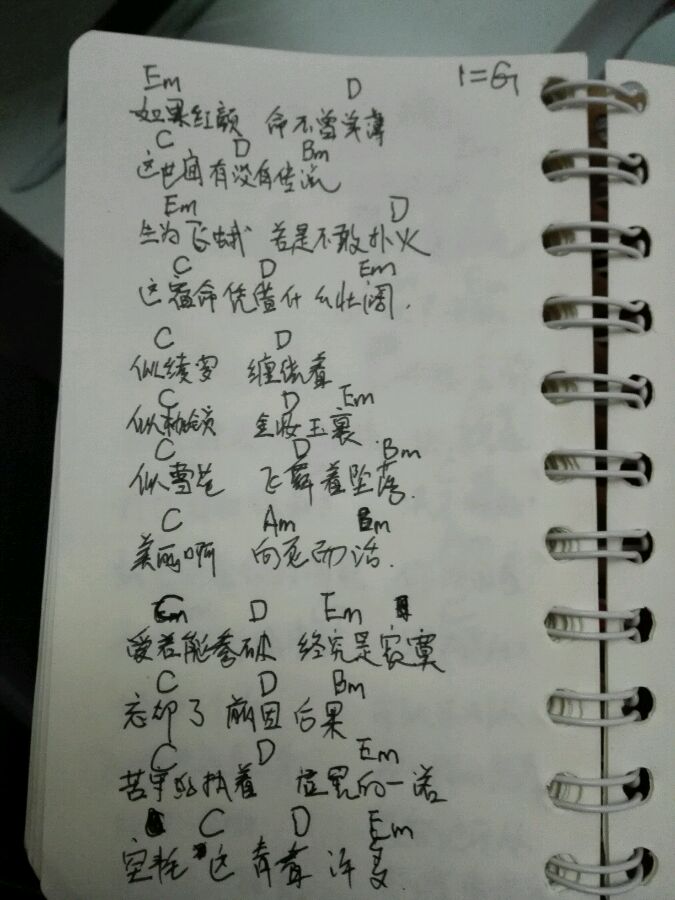 Em D 1=G
如果红颜 命不曾单薄
C D Bm
这世间有没有传说
Em D
生为飞蛾 若是不敢扑火
C D Em
这宿命凭借什么壮阔.
C D
似绫罗 缠绕着
C D Em
似枷锁 金妆玉裹
C D Bm
似雪花 飞舞着坠落.
C Am Bm
美丽啊 向死而活.
C D Em
爱若能参破 终究是寂寞
C D Bm
忘却了 前因后果
C D Em
苦守的执着 一诺
C D Em
空耗 这青春许多